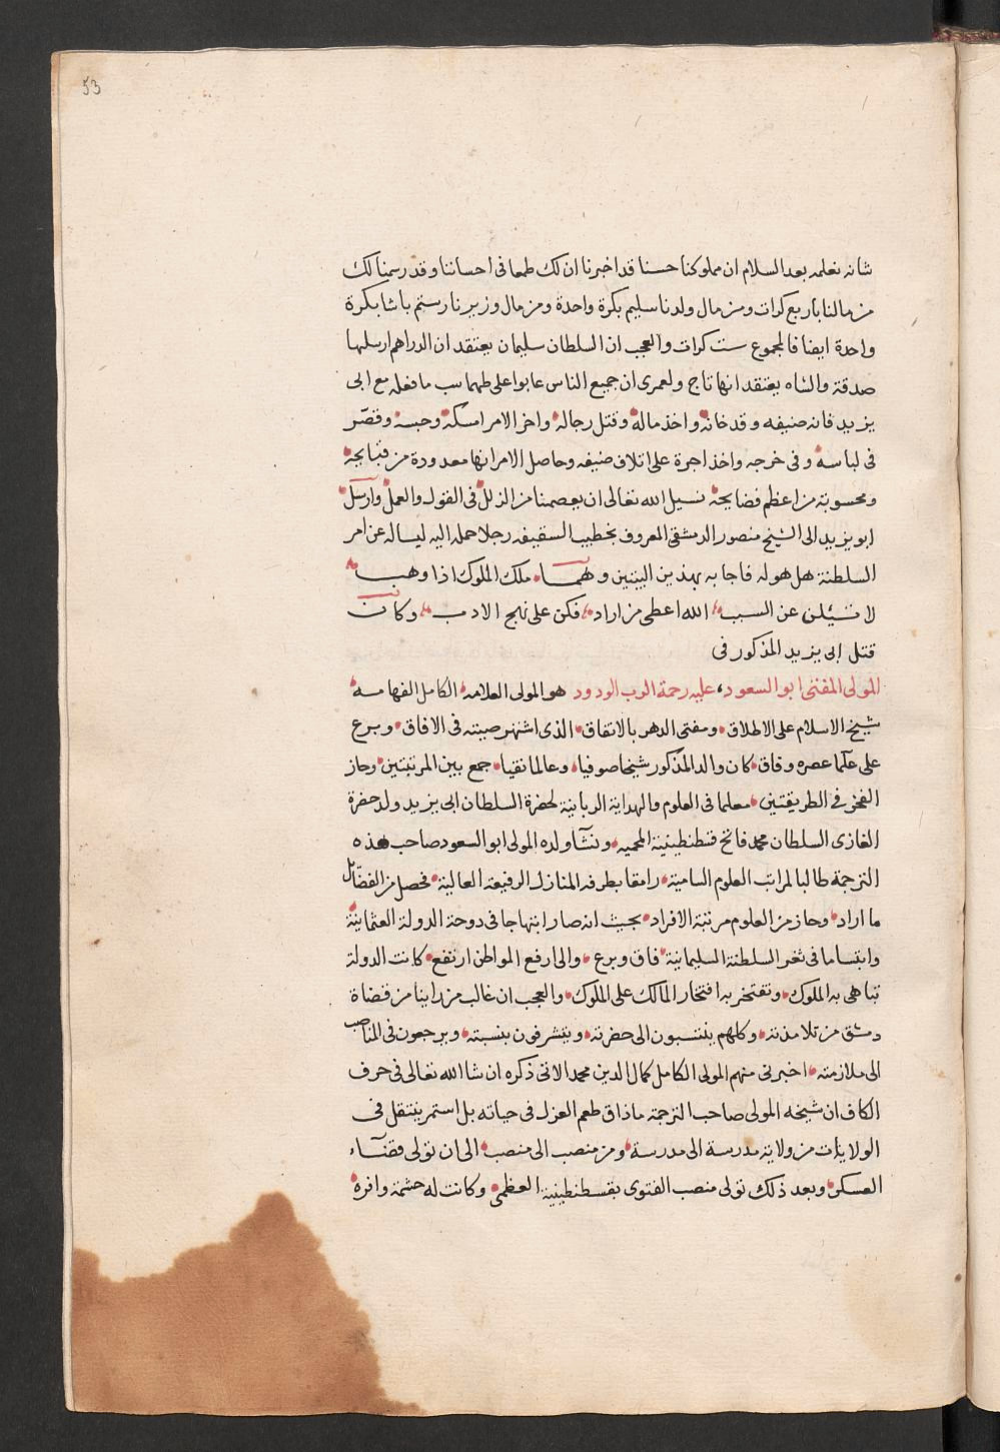 53
شانه نعلمه بعد السلام ان مملوكنا حسنا قد اخبرنا ان لك طمعا فى احساننا وقد رسمنا لك
من مالنا باربع كرات ومن مال ولدنا سليم بكرة واحدة ومن مال وزيرنا رستم باشا بكرة
واحدة ايضا فالمجموع ست كرات والعجب ان السلطان سليمان يعتقد ان الدراهم ارسلها
صدقة والشاه يعتقد انها تاج ولعمرى ان جميع الناس عابوا على طهماسب ما فعله مع ابى
يزيد فانه ضيفه وقد خانه واخذ ماله وقتل رجاله واخر الامر امسكه وحبسه وقصّر
فى لباسه وفى خرجه واخذ اجرة على اتلاف ضيفه وحاصل الامر انها معدودة من قبايحه
ومحسوبة من اعظم فضايحه نسيل الله تعالى ان يعصمنا من الزلل فى القول والعمل وارسل
ابو يزيد الى الشيخ منصور الدمشقى المعروف بخطيب السقيفه رجلا حمله اليه ليساله عن امر
السلطنة هل هو له فاجابه بهذين البيتين وهما ملك الملوك اذا وهب
لا تسئلن عن السبب الله اعطى من اراد فكن على نهج الادب وكانت
قتل ابى يزيد المذكور فى
المولى المفتى ابو السعود، عليه رحمة الرب الودود هو المولى العلامه الكامل الفهامه
شيخ الاسلام على الاطلاق ومفتى الدهر بالاتفاق الذى اشتهر صيته فى الافاق وبرع
على علما عصره وفاق كان والد المذكور شيخا صوفيا وعالما نقيا جمع بين المرتبتين وحاز
الفخر فى الطريقتين معلما فى العلوم والهداية الربانية لحضرة السلطان ابى يزيد ولد حضرة
الغازى السلطان محمد فاتح قنطنطينية المحميه ونشأ ولده المولى ابو السعود صاحب هذه
الترجمة طالبا لمراتب العلوم السامية رامقا بطرفه المنازل الرفيعة العالية فحصل من الفضائل
ما اراد وحاز من العلوم مرتبة الافراد بحيث انه صار ابتهاجا فى دوحة الدولة العثمانية
وابتساما فى ثغر السلطنة السليمانية فاق وبرع والى ارفع المواطن ارتفع كانت الدولة
تباهى به الملوك وتفتخر به افتخار المالك على الملوك والعجب ان غالب من راينا من قضاة
دمشق من تلامذته وكلهم ينتسبون الى حضرته ويتشرفون بنسبته ويرجعون فى المناصب
الى ملازمته اخبرنى منهم المولى الكامل كمال الدين محمد الاتى ذكره ان شا الله تعالى فى حرف
الكاف ان شيخه المولى صاحب الترجمة ماذاق طعم العزل فى حياته بل استمر ينتقل فى
الولايات من ولاية مدرسة الى مدرسة ومن منصب الى منصب الى ان تولى قضاء
العسكر وبعد ذلك تولى منصب الفتوى بقسطنطينية العظمى وكانت له حشمة وافرة